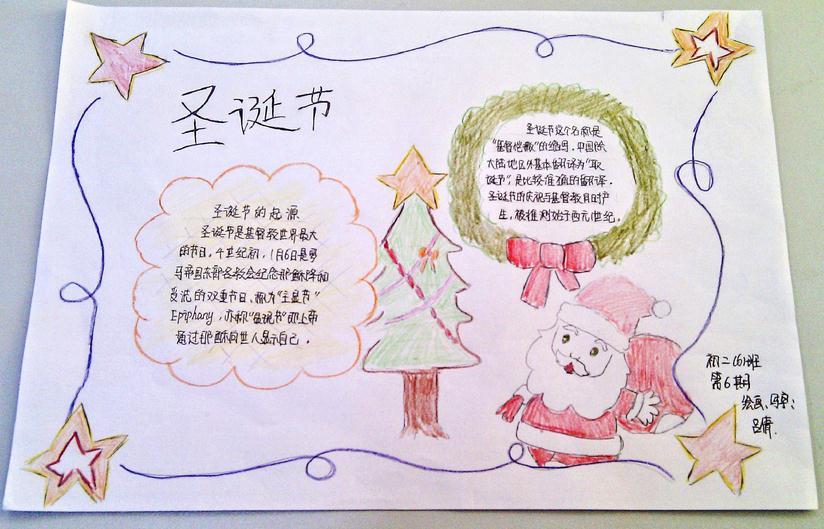 圣诞节
圣诞节的起源
圣诞节是基督教世界最大
的节日。4世纪初，1月6日是罗
马帝国东部各教会纪念耶稣降和
受洗的双重节日、称为"主显节"
Epiphany，亦称"显现节"即上帝
通过耶稣向世人显示自己。
圣诞节这个名称是
"基督弥撒"的缩写。中国除
大陆地区外基本翻译为"耶
诞节"，是比较准确的翻译。
圣诞节的庆祝与基督教同时产
生，被推测始于西元1世纪。
初二(6)班
第6期
绘画、